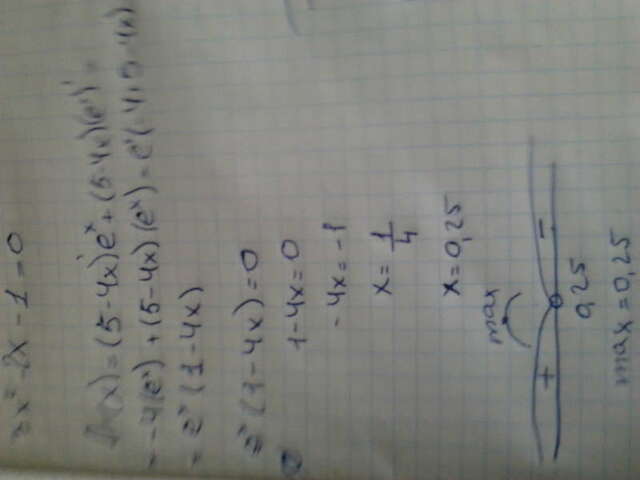 3x² - 2x - 1 = 0
(x) = (5-4x)'e^x + (5-4x)(e^x)' =
= -4(e^x) + (5-4x)(e^x) = e^x(-4+5-4x)
= e^x(1-4x)
e^x(1-4x) = 0
1-4x=0
-4x=-1
x = 1/4
x = 0,25
max
+ -
0,25
max x = 0,25